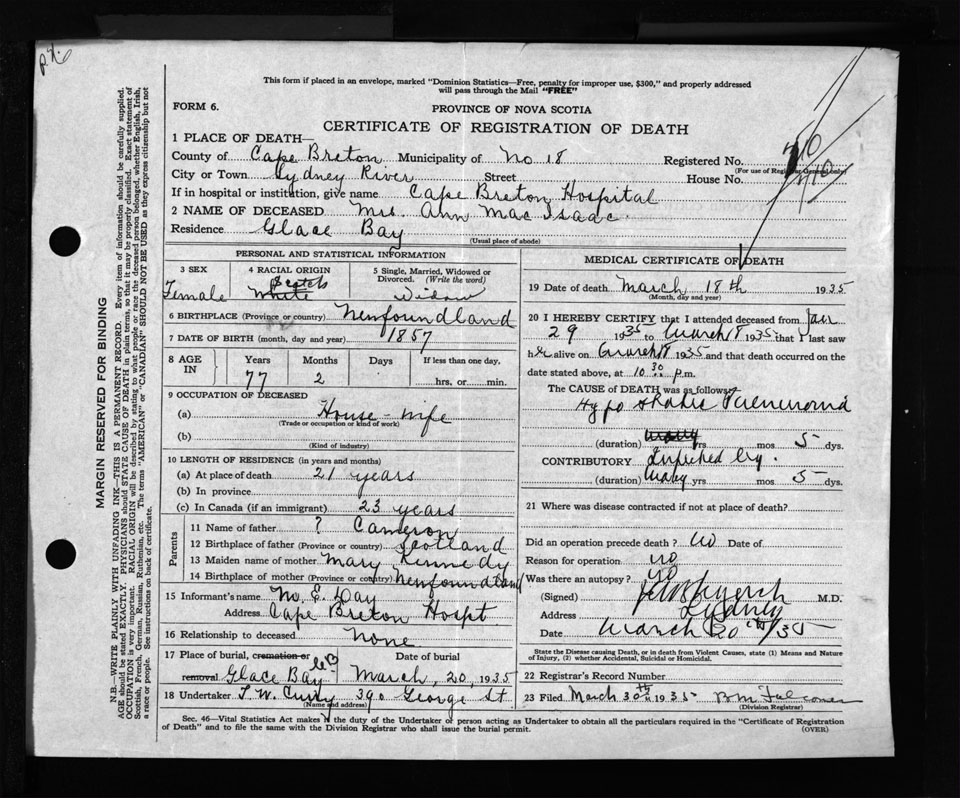 This form if placed in an envelope, marked "Dominion Statistics—Free, penalty for improper use, $300," and properly addressed
will pass through the Mail "FREE"
FORM 6.
PROVINCE OF NOVA SCOTIA
CERTIFICATE OF REGISTRATION OF DEATH
MARGIN RESERVED FOR BINDING
N.B.—WRITE PLAINLY WITH UNFADING INK—THIS IS A PERMANENT RECORD. Every item of information should be carefully supplied.
AGE should be stated EXACTLY. PHYSICIANS should STATE CAUSE OF DEATH in plain terms, so that it may be properly classified. Exact statement of
OCCUPATION is very important. RACIAL ORIGIN will be described by stating to what people or race the deceased person belonged, whether English, Irish,
Scottish, French, German, Russian, Ruthenian, etc. The terms "AMERICAN" or "CANADIAN" SHOULD NOT BE USED as they express citizenship but not
a race or people. See instructions on back of certificate.
1 PLACE OF DEATH—
County of Cape Breton Municipality of No 18 Registered No. 710
(For use of Registrar General only)
City or Town Sydney River Street House No. 710
If in hospital or institution, give name Cape Breton Hospital
2 NAME OF DECEASED Mrs. Ann Mac Isaac
Residence Glace Bay
(Usual place of abode)
PERSONAL AND STATISTICAL INFORMATION
3 SEX Female
4 RACIAL ORIGIN Scotch White
5 Single, Married, Widowed or Divorced. (Write the word) Widow
6 BIRTHPLACE (Province or country) Newfoundland
7 DATE OF BIRTH (month, day and year) 1857
8 AGE IN Years 77 Months 2 Days If less than one day. hrs. or min.
9 OCCUPATION OF DECEASED
(a) House-wife
(Trade or occupation or kind of work)
(b)
(Kind of industry)
10 LENGTH OF RESIDENCE (in years and months)
(a) At place of death 21 years
(b) In province years
(c) In Canada (if an immigrant) 23 years
Parents
11 Name of father ? Cameron
12 Birthplace of father (Province or country) Scotland
13 Maiden name of mother Mary Kennedy
14 Birthplace of mother (Province or country) Newfoundland
15 Informant's name M. E. Day
Address Cape Breton Hospt
16 Relationship to deceased None
17 Place of burial, cremation or removal Glace Bay CB
Date of burial March, 20, 1935
18 Undertaker T. W. Curry 390 George St.
(Name and address)
MEDICAL CERTIFICATE OF DEATH
19 Date of death March 18th 1935
(Month, day and year)
20 I HEREBY CERTIFY that I attended deceased from Jan
29 1935 to March 18 1935 that I last saw
her alive on March 18 1935 and that death occurred on
date stated above, at 10 30 p.m.
The CAUSE of DEATH was as follows:
Hypostatic Pneumonia
(duration) yrs mos 5 dys.
CONTRIBUTORY
(duration) yrs mos 5 dys.
21 Where was disease contracted if not at place of death?
Did an operation precede death? no Date of
Reason for operation no
Was there an autopsy? no
(Signed) M.D.
Address Sydney
Date March 20th/35
State the Disease causing Death, or in death from Violent Causes, state (1) Means and Nature
of Injury, (2) whether Accidental, Suicidal or Homicidal.
22 Registrar's Record Number
23 Filed March 30th 1935
(Division Registrar)
Sec. 46—Vital Statistics Act makes it the duty of the Undertaker or person acting as Undertaker to obtain all the particulars required in the "Certificate of Registration
of Death" and to file the same with the Division Registrar who shall issue the burial permit.
(OVER)